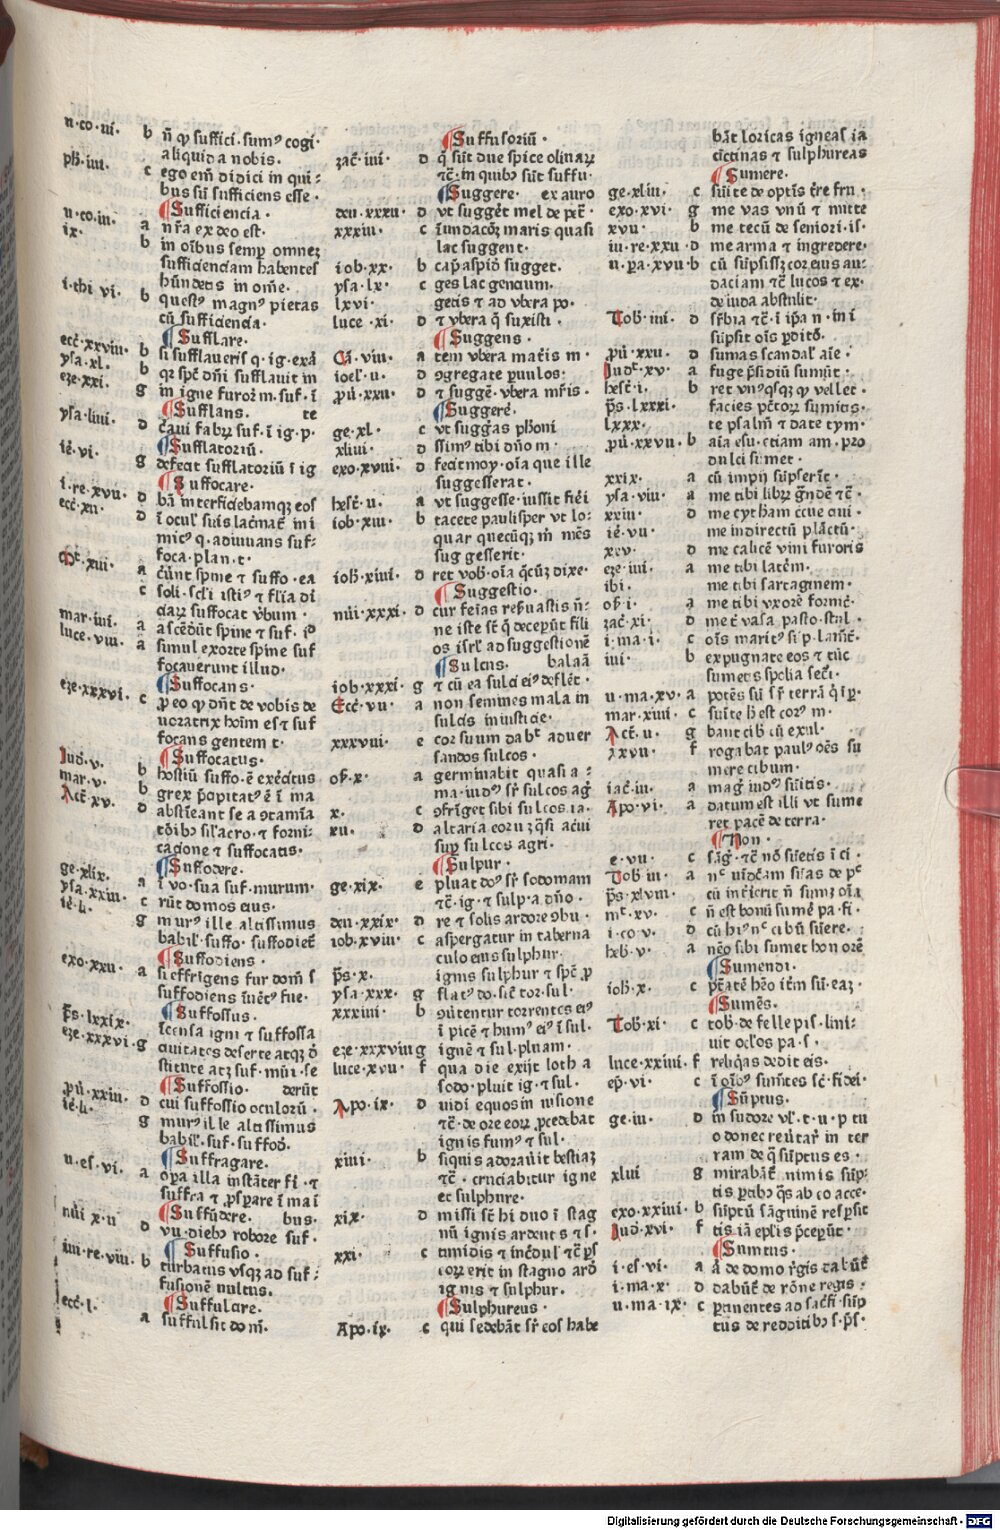 n·co·iii· b n̄ ꝙ suffici·sumꝰ cogi·
aliquid a nobis·
ph̄·iiii· c ego em̄ didici in qui⸗
bus sū sufficiens esse·
¶Sufficiencia·
n·co·iii· a nr̄a ex deo est·
ix· b in oībus semꝑ omnez
sufficienciam habentes
hūndetis in om̄e·
i·thi vi· b questꝰ magnꝰ pietas
cū sufficiencia·
¶Sufflare·
ecc̄·xxviii· b si sufflaueris q·ig·exā
ysa·xl· b qr sp̄c dn̄i sufflauit in
eze·xxi· g in igne furoꝝ m·suf·ī
¶Sufflans· te
ysa·liiii· d c̄aui fabꝝ suf·ī ig·p·
¶Sufflatoriū·
ie̅·vi· g defecit sufflatoriū ī ig
¶Suffocare·
i·re·xvii· d bā interficiebamqꝫ eos
ecc̄·xii· d ī oculꝭ suis lac̄mat̄ ini
micꝰ q·adiuuans suf⸗
foca·plan·t·
mt̄·xiii· a c̄ūnt spine ⁊ suffo·ea
c soli·scl̄i istiꝰ ⁊ fl̄ia di
ciaꝝ suffocat v̄bum·
mar·iiii· a ascēdūt spine ⁊ suf·id
luce·viii· a simul exorte spine suf
focauerunt illud·
¶Suffocans·
eze·xxxvi· c ꝓ eo ꝙ dn̄t de vobis de
uoratrix hoīm es ⁊ suf
focans gentem t·
¶Suffocatus·
Iud·v· b hostiū suffo·ē exercitus
mar·v· b grex p̄cipitatꝰ ē ī ma
Act̄·xv· d abstīeant se a ꝯtamīa
tōibꝫ sil̄acro·⁊ forni⸗
cacione ⁊ suffocatis·
¶Suffodere·
ge·xlix· a ī vo·sua suf·murum·
ysa·xxiii· c rūt domos eius·
ie̅·li· g murꝰ ille altissimus
babil̄·suffo·suffodiet̄
¶Suffodiens·
exo·xxii· a si effrigens fur dom̄ s
suffodiens īuētꝰ fue·
¶Suffossus·
p̄s·lxxix· īcensa igni ⁊ suffossa
eze·xxxvi·g ciuitates deserte atqꝫ d̄
stitute atꝫ suf·mūi·se
¶Suffossio· derūt
ꝓū·xxiii· d cui suffossio oculorū·
ie̅·li· g murꝰ ille altissimus
babil̄·suf·suffod̄·
¶Suffragare·
n·es·vi· a oꝑa illa instāter fi·⁊
suffra ⁊ ꝓsꝑare ī ma ī
¶Suffūdere· bus·
nūi x·ii d vu·diebꝫ robore suf·
¶Suffusio·
iiii·re·viii· b turbatus vsqꝫ ad suf⸗
fusionē vultus·
¶Suffulcire·
ecc̄·l· a suffulsit dom̄·
¶Suffusoriū·
zac̄·iiii· d q̄ sūt due spice oliuaꝝ
⁊c̄·in quibꝫ sūt suffu·
¶Suggere· ex auro
deu·xxxii· d vt sugget̄ mel de pet̄·
xxxiii· c īundacōꝫ maris quasi
lac suggent·
iob·xx· b cap̄ aspid̄ sugget·
ysa·lx· c ges lac gencium·
lxvi· getis ⁊ ad vbera po·
luce·xi· d ⁊ vbera q̄ suxisti·
¶Suggens·
Cā·viii· a tem vbera mat̄is m·
ioel̄·ii· d ꝯgregate ꝑuulos:
ꝓū·xxx· d ⁊ suggē·vbera mr̄is·
¶Suggerē·
ge·xl· c vt suggas pharoni
xliiii· d ssimꝰ tibi dn̄o m·
exo·xviii· d fecit moy·oīa que ille
suggesserat·
hest̄·ii· a vt suggesse·iussit fiēi
iob·xiii· b tacete paulisper vt lo⸗
quar quecūqꝫ m̄ mēs
sug gesserit·
ioh̄·xiiii· d ret vob̄·oīa q̄cūꝫ dixe·
¶Suggestio·
nūi·xxxi· d cur feīas res̄uastis n̄·
ne iste st̄ q̄ deceperūt fili
os isrl̄ ad suggestionē
¶Sulcus· balaā
iob·xxxi· g ⁊ cū ea sulci eiꝰ deflēt·
Ecc̄·vii· a non semines mala in
sulcis iniusticie·
xxxviii· e cor suum dabt aduer
sandos sulcos·
oſ̄·x· a germinabit quasi a⸗
ma·iudꝰ sr̄ sulcos agr̄
x· c ꝯfrīget sibi sulcos ia·
xii· d altaria coru̅ ꝫ qͣsi acīui
suꝑ sulcos agri·
¶Sulpur·
ge·xix· e pluat doꝰ sr̄ sodomam
⁊c̄·ig·⁊ sulp·a dn̄o·
deu·xxix· d re ⁊ solis ardore ꝯbu·
iob·xviii· c aspergatur in taberna
culo eius sulphur·
p̄s·x· ignis sulphur ⁊ sp̄c ꝓ
ysa·xxx· g flatꝰ do·sic̄ tor·sul·
xxxiiii· b ꝯūtentur torrentes eiꝰ
ī picē ⁊ humꝰ eiꝰ ī sul·
eze·xxxviii g ignē ⁊ sul·pluam·
luce·xvii· f qua die exijt loth a
sodo·pluit ig·⁊ sul·
Apo·ix· d uidi equos in uisione
⁊c̄·de ore eoꝝ ꝓcedebat
ignis fumꝰ ⁊ sul·
xiiii· b siquis adorauit bestiaꝫ
⁊c̄·cruciabitur igne
et sulphure·
xix· d missi st̄ hi duo ī stag
nū ignis ardentis ⁊ s·
xxi· c timidis ⁊ incdul̄ ⁊c̄ ꝑs
coꝝ erit in stagno ard̄
ignis ⁊ sulphur·
¶Sulphureus·
Apo·ix· c qui sedebāt sr̄ eos habe
bāt loricas igneas ia
cīctinas ⁊ sulphureas
¶Sumere·
ge·xliii· c sūite de optīs t̄re fru·
exo·xvi· g me vas vnū ⁊ mitte
xvii· b me tecū de seniori·is·
iii·re·xxii·d me arma ⁊ ingredere·
ii·ꝑa·xvii·b cū sūpsissꝫ cor eius au⸗
daciam ⁊c̄ lucos ⁊ ex·
de iuda abstulit·
Tob̄·iiii· d sr̄bia ⁊c̄·ī ip̄a n·ini
sūpsit oīs ꝑditō·
ꝓū·xxii· d sumas scandal̄ aīe·
Iudc̄·xv· a fuge p̄sidiū sumūt·
hest̄·i· b ret vnꝰqͥsqꝫ ꝙ vellet·
p̄s·lxxxi· facies pc̄toꝝ sumitis·
lxxx· te psalm̄ ⁊ date tym·
ꝓū·xxvii· b aīa esu·etiam am·pro
dulci sumet·
xxix· a cū impij sūpserīt·
ysa·viii· a me tibi libꝝ gn̄dē ⁊c̄·
xxiii· d me cytharam circue ciui·
ie̅·vii· me indirectū plāctū·
xxv· d me calicē vini furoris
eze·iiii· a me tibi latēm·
ibi· me tibi sartaginem·
oſ̄·i· a me tibi vxorē formc̄·
zac̄·xi· d me t̄ vasa pasto·stul·
i·ma·i· c oīs maritꝰ si p·lamt̄·
iiii· b expugnate eos ⁊ tūc
sumetis spolia seci·
ii·ma·xv· a potēs sū sr̄ terrā q̄ īꝑ·
mar·xiiii· c sūite h̄ est corꝰ m·
Act̄·ii· g bant cib cū exul·
xxvii· f rogabat paulꝰ oēs su
mere cibum·
iac̄·iii· a magꝭ iudꝰ sūitis·
Apo·vi· a datum est illi vt sume
ret pacē de terra·
¶Non·
e·vii· c sāg·⁊c̄ nō sūetis ī ci·
Tob̄·iii· a nc̄ uīdcām sīlas de pc̄
p̄s·xlviii· cū int̄ierit n̄ sumꝫ oīa
mt̄·xv· c n̄ est bonū sumē pa·fi·
i·co·v· d cū hiꝰ nc̄ cibū sūere·
heb̄·v· a neō sibi sumet honorē
¶Sumendi·
ioh̄·x· c pt̄atē h̄eo it̄m sū·eaꝫ·
¶Sumēs·
Tob̄·xi· c tob̄·de felle pis·lini⸗
uit oclos pa·s·
luce·xxiiii· f reliqͥas dedit eis·
ep̄·vi· c ī oībꝰ sumētes sc̄·fidei·
¶Sūptus·
ge·iii· d in sudore vl̄·t·u·p tu
o donec reūtar̄ in ter
ram de q̄ sūptus es·
xliii g mirabāt̄ nimis sūp⸗
tis ꝑtibꝫ qͥs ab eo acce·
exo·xxiiii· b sūptū sāguinē resꝑsit
Iud·xvi· f tis iā eplis p̄ceꝑūt·
¶Sumtus·
i·es·vi· a ā de domo r̄gis dabūt̄
i·ma·x· d dabūt̄ de rōne regis·
ii·ma·ix· c ꝑtinentes ad sacfi·sūp
tus de redditibꝫ s·p̄s·
Digitalisierung gefördert durch die Deutsche Forschungsgemeinschaft · DFG